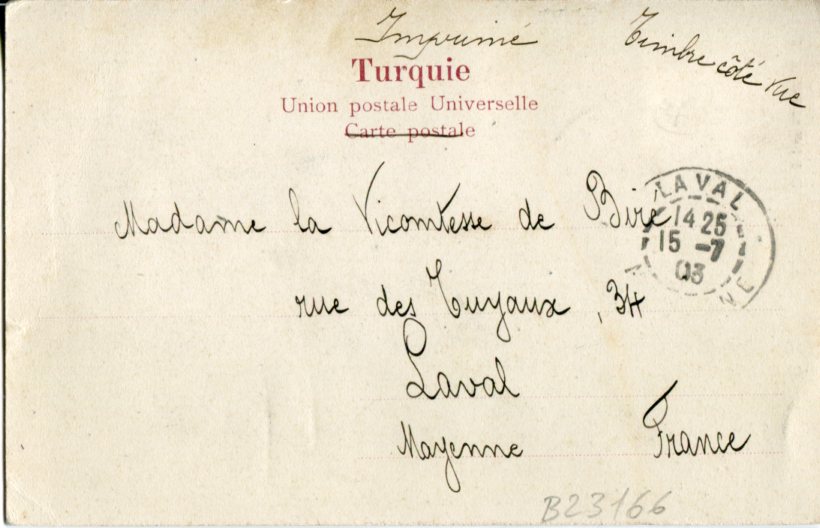 Imprimé
Timbre côté vue
Turquie
Union postale Universelle
Carte postale
Madame la Vicomtesse de Biré
rue des Tuyaux, 34
Laval
Mayenne France
LAVAL
14 25
15 -7
03
B23166